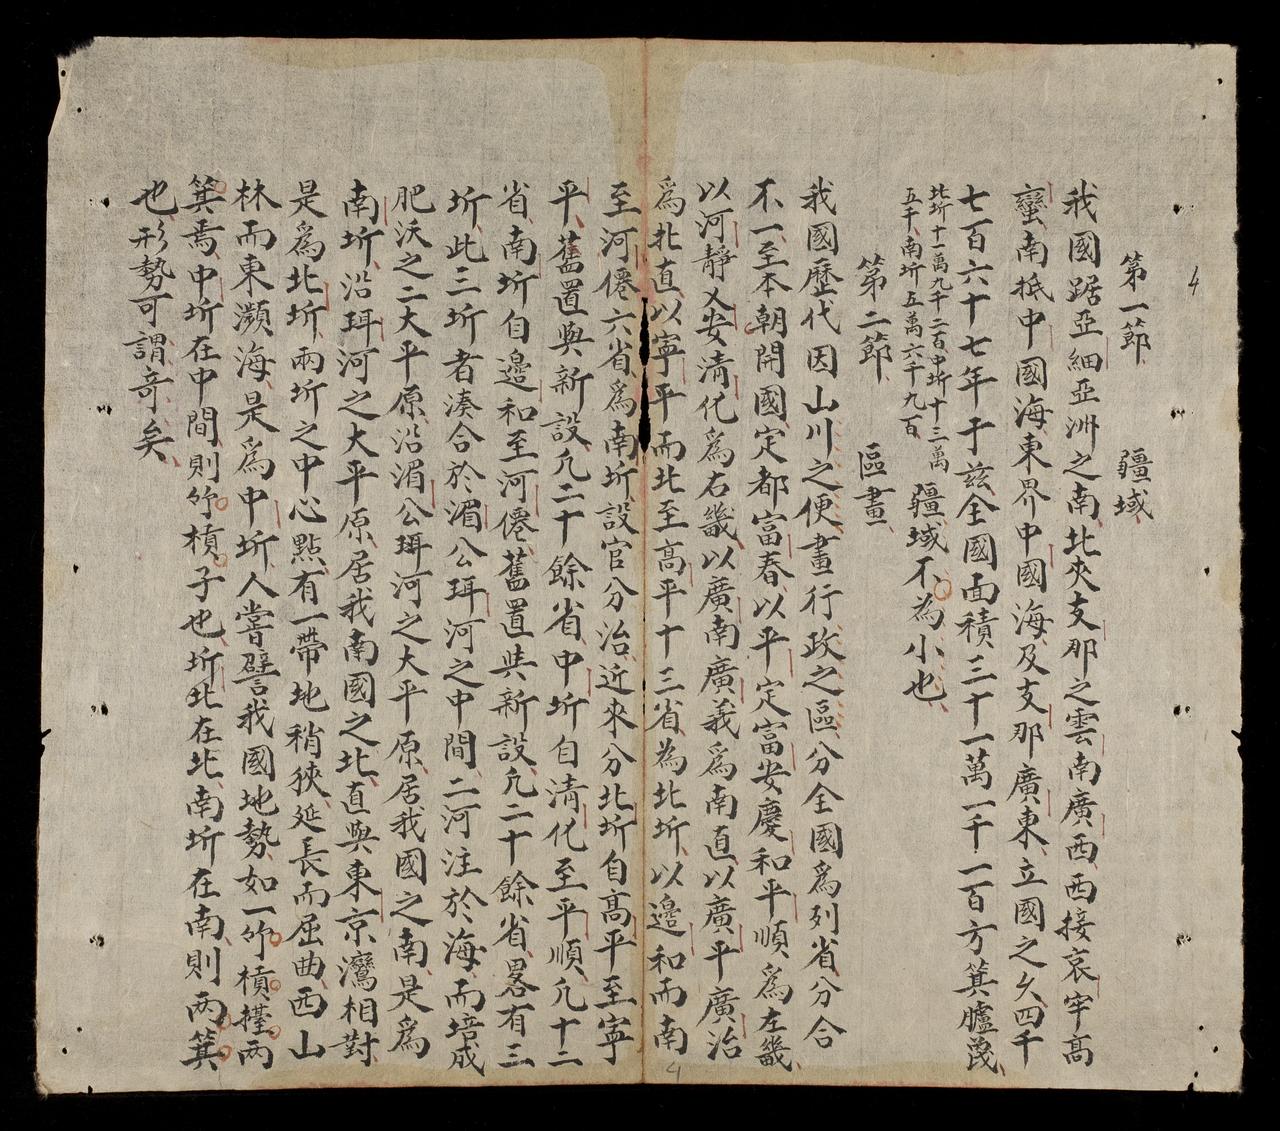 4
第一節 疆域
我國踞亞細亞洲之南北夾支那之雲南廣西西接哀牢高
蠻南抵中國海東界中國海及支那廣東立國之久四千
七百六十七年于茲全國面積三十一萬一千一百方箕臚蔑
北圻十一萬九千二百中圻十三萬
五千南圻五萬六千九百
疆域不為小也
第二節 區畫
我國歷代因山川之便畫行政之區分全國爲列省分合
不一至本朝開國定都富春以平定富安慶和平順爲左畿
以河靜乂安清化爲右畿以廣南廣義爲南直以廣平廣治
爲北直以寧平而北至高平十三省為北圻以邊和而南
至河僊六省爲南圻設官分治近來分北圻自高平至寧
平舊置與新設凡二十餘省中圻自清化至平順凡十二
省南圻自邊和至河僊舊置與新設凡二十餘省畧有三
圻此三圻者湊合於湄公珥河之中間二河注於海而培成
肥沃之二大平原沿湄公珥河之大平原居我國之南是爲
南圻沿珥河之大平原居我南國之北直與東京灣相對
是爲北圻兩圻之中心點有一帶地稍狹延長而屈曲西山
林而東瀕海是爲中圻人嘗譬我國地勢如一竹槓擡兩
箕焉中圻在中間則竹槓子也圻北在北南圻在南則两箕
也形勢可謂竒矣
4